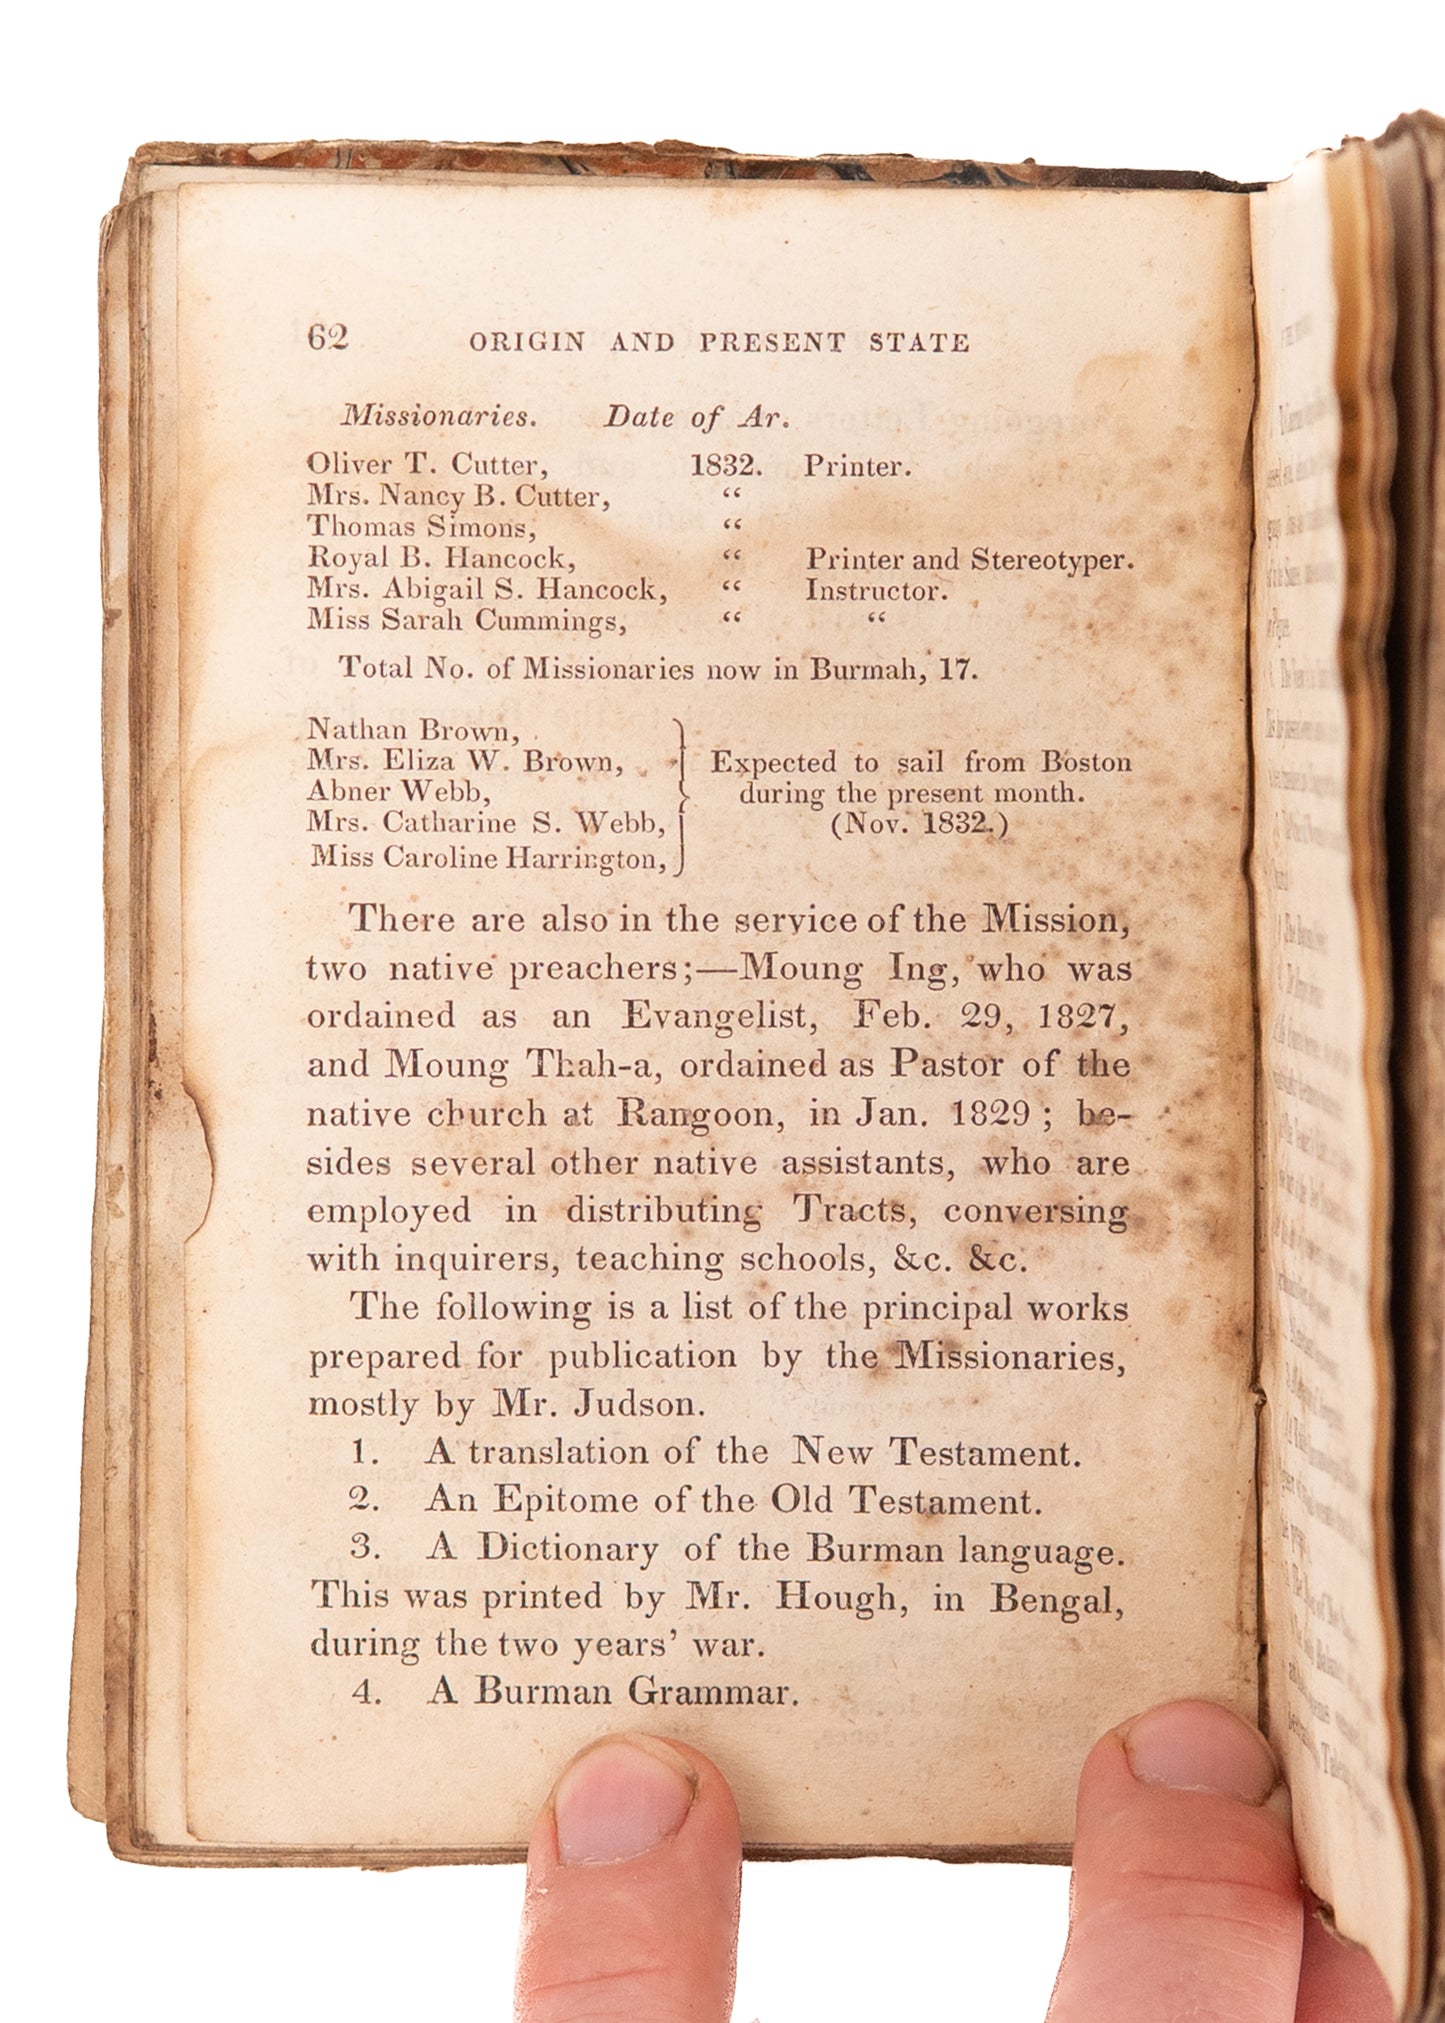 62 ORIGIN AND PRESENT STATE
Missionaries. Date of Ar.
Oliver T. Cutter, 1832. Printer.
Mrs. Nancy B. Cutter, “
Thomas Simons, “
Royal B. Hancock, “ Printer and Stereotyper.
Mrs. Abigail S. Hancock, “ Instructor.
Miss Sarah Cummings, “ “
Total No. of Missionaries now in Burmah, 17.
Nathan Brown,
Mrs. Eliza W. Brown,
Abner Webb,
Mrs. Catharine S. Webb,
Miss Caroline Harrington,
Expected to sail from Boston
during the present month.
(Nov. 1832.)
There are also in the service of the Mission,
two native preachers;—Moung Ing, who was
ordained as an Evangelist, Feb. 29, 1827,
and Moung Thah-a, ordained as Pastor of the
native church at Rangoon, in Jan. 1829 ; be-
sides several other native assistants, who are
employed in distributing Tracts, conversing
with inquirers, teaching schools, &c. &c.
The following is a list of the principal works
prepared for publication by the Missionaries,
mostly by Mr. Judson.
1. A translation of the New Testament.
2. An Epitome of the Old Testament.
3. A Dictionary of the Burman language.
This was printed by Mr. Hough, in Bengal,
during the two years’ war.
4. A Burman Grammar.